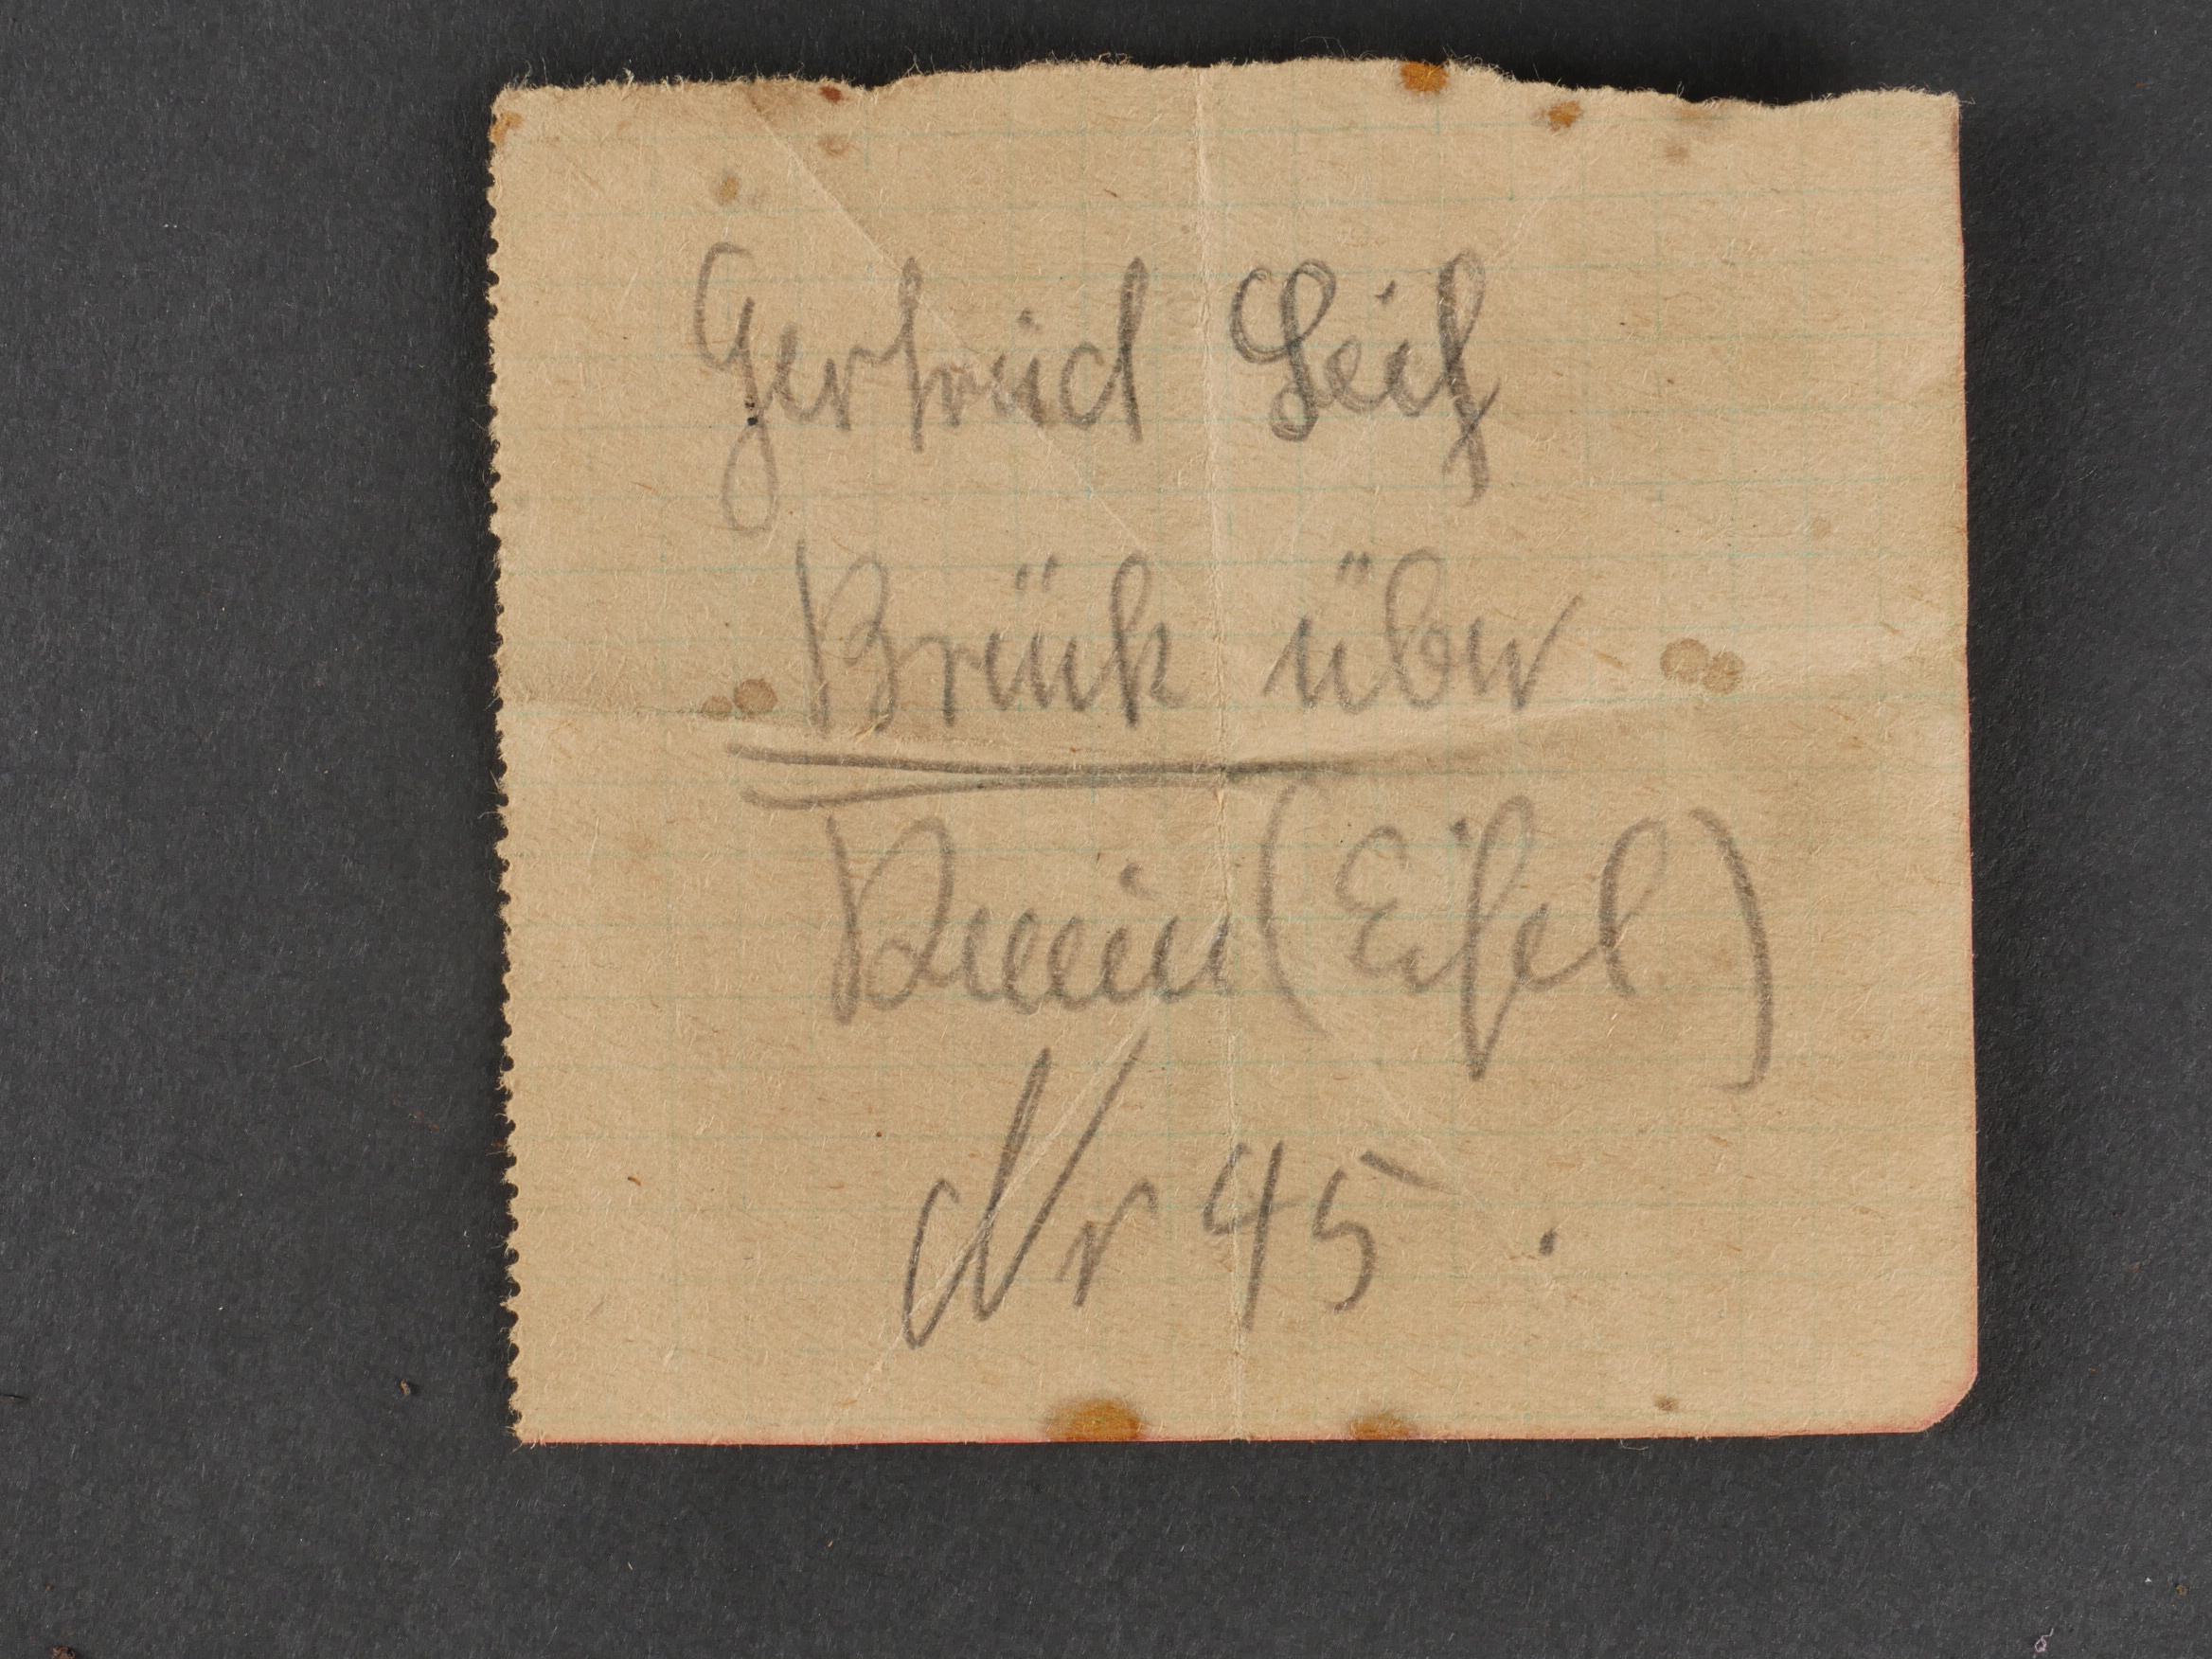 Gertrud Leif
Brück über
Daun (Eifel)
Nr 45.